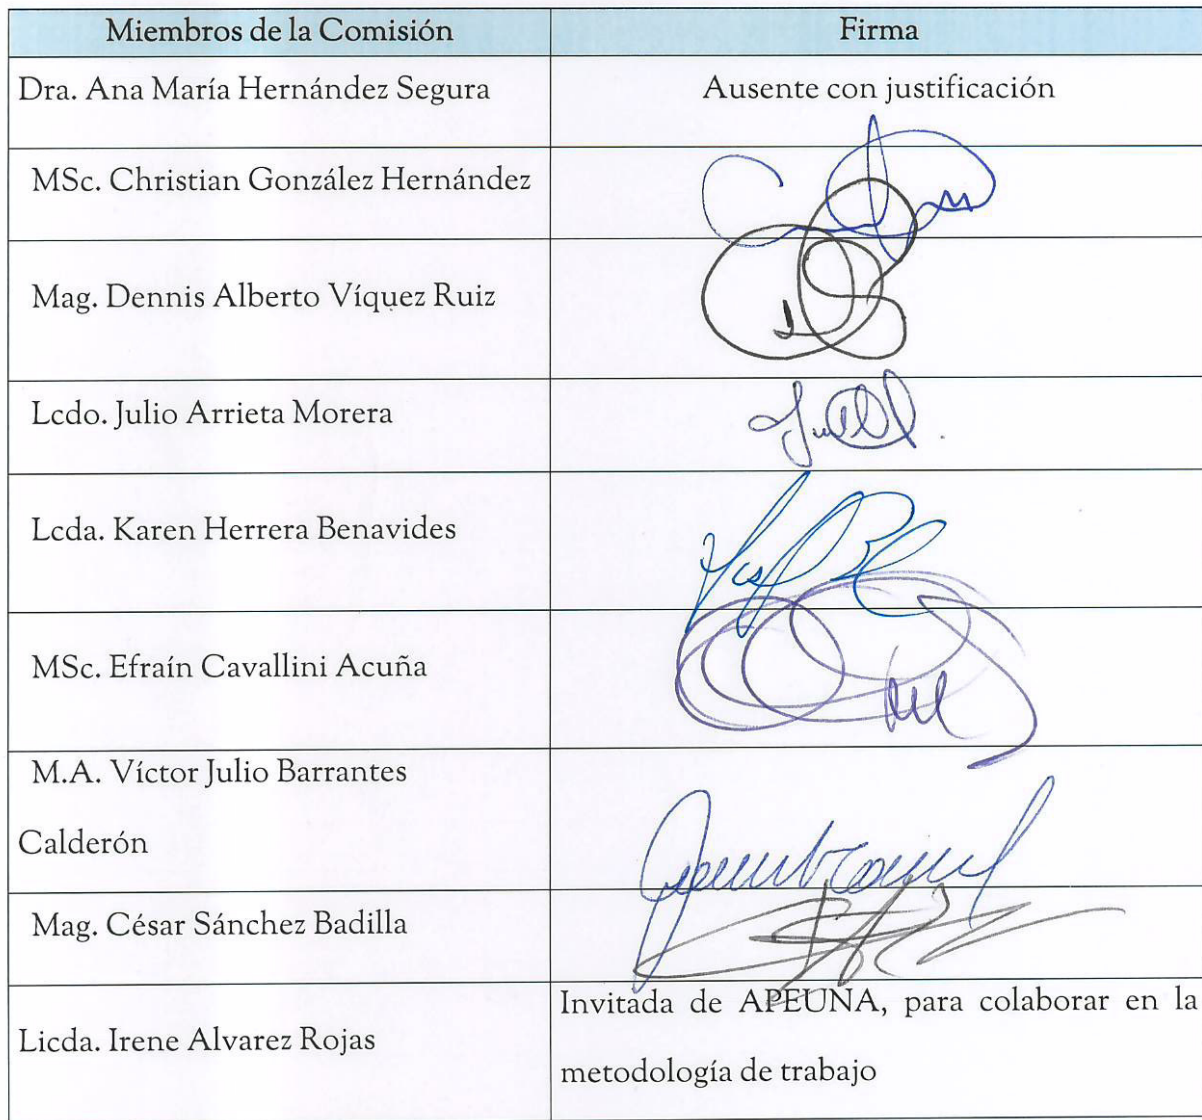 Miembros de la Comisión
Firma
Dra. Ana María Hernández Segura
Ausente con justificación
MSc. Christian González Hernández
Mag. Dennis Alberto Víquez Ruiz
Lcdo. Julio Arrieta Morera
Lcda. Karen Herrera Benavides
MSc. Efraín Cavallini Acuña
M.A. Víctor Julio Barrantes
Calderón
Mag. César Sánchez Badilla
Licda. Irene Alvarez Rojas
Invitada de APEUNA, para colaborar en la
metodología de trabajo